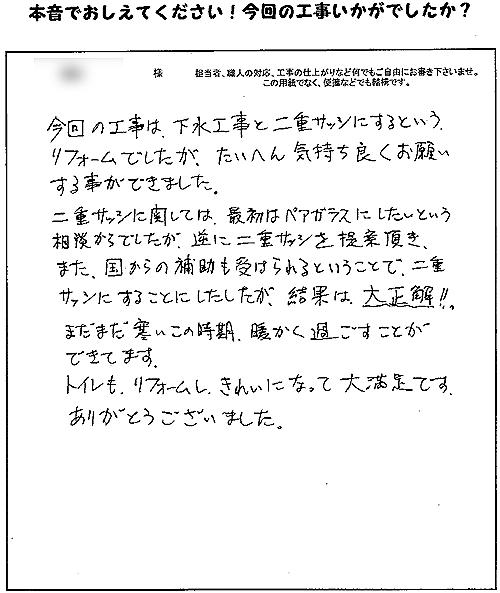 本音でおしえてください！今回の工事いかがでしたか？
様
担当者、職人の対応、工事の仕上がりなど何でもご自由にお書き下さいませ。
この用紙でなく、便箋などでも結構です。
今回の工事は、下水工事と二重サッシにするという、
リフォームでしたが、たいへん気持ち良くお願い
する事ができました。
二重サッシに関しては、最初はペアガラスにしたいという
相談からでしたが、逆に二重サッシを提案頂き、
また、国からの補助も受けられるということで、二重
サッシにすることにしたしたが、結果は、大正解!!。
まだまだ寒いこの時期、暖かく過ごすことが
できてます。
トイレも、リフォームし、きれいになって大満足です。
ありがとうございました。